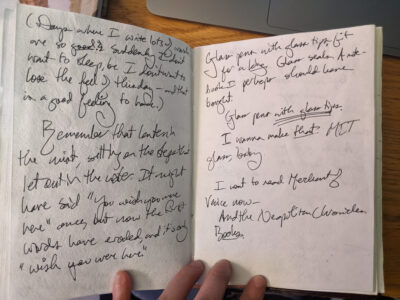 (Days where I write lots of words
are so good. Suddenly I don't
want to sleep bc I don't want to
lose the feel of this day - and that
is a good feeling to have.)
Remember that lantern in
the mist, sitting on the steps that
let out in the water. It might
have said "you wish you were
here" once, but now the first
words have eroded, and it's only
"wish you were here."
Glass pens with glass tips fit
for a king. Glass sealer. A note-
book I perhaps should have
bought.
Glass pens with glass tips.
I wanna make that MIT
glass, baby
I want to read Merchant of
Venice now—
And the Neapolitan Chronicles
Books